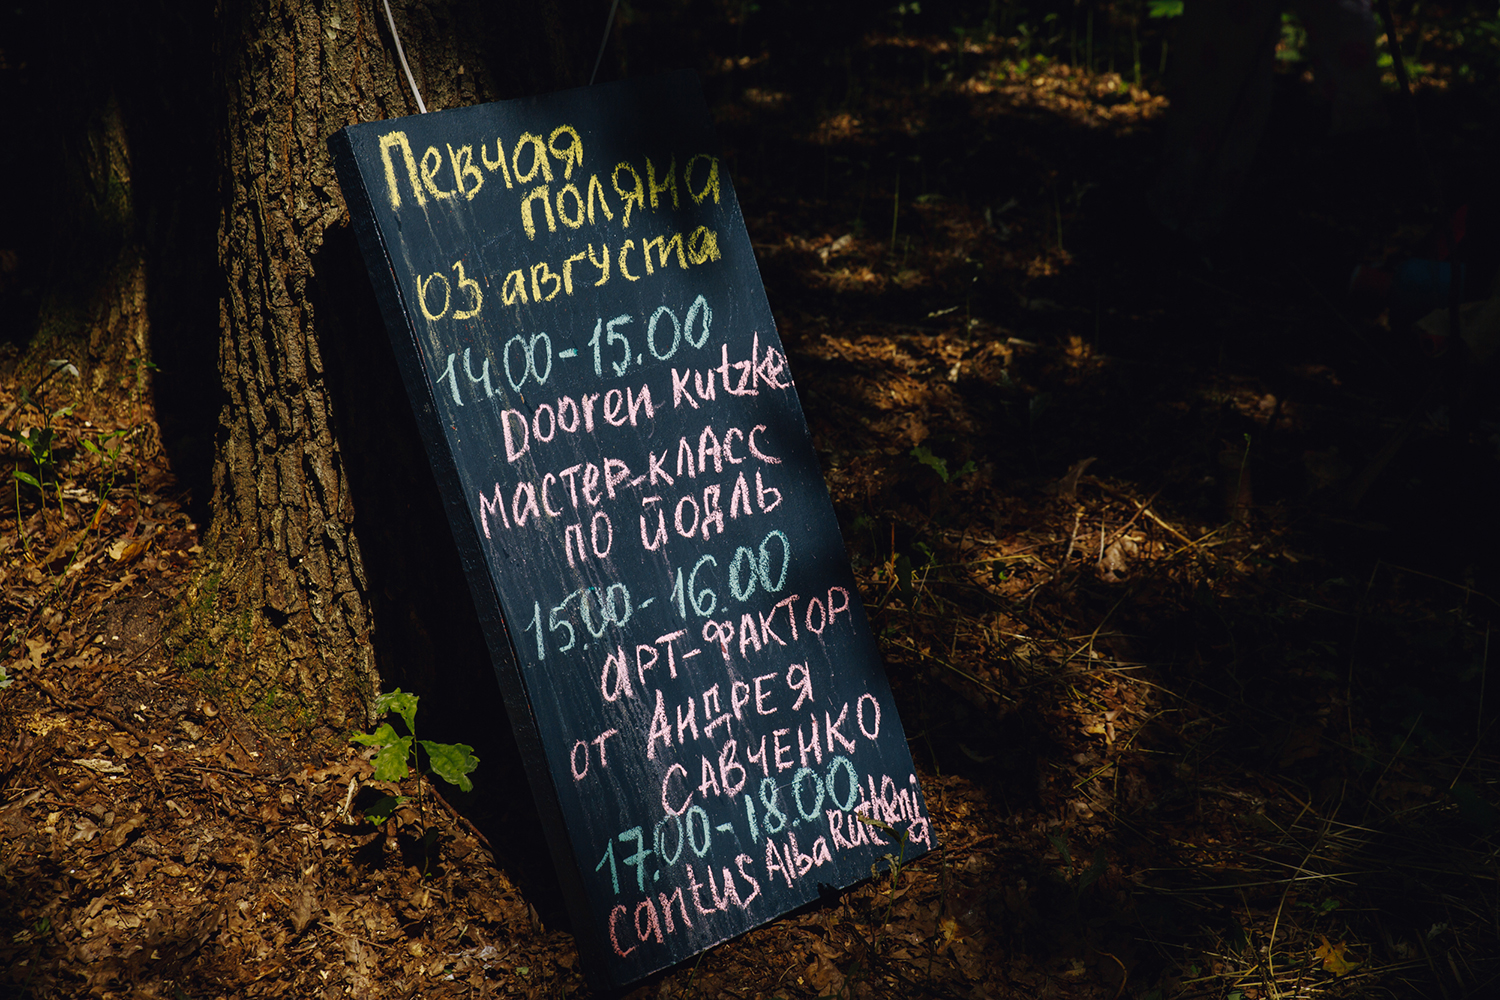 Певчая
поляна
03 августа
14.00-15.00
Dooren Kutzke
мастер-класс
по йодль
15.00-16.00
арт-фактор
от Андрея
Савченко
17.00-18.00
cantus Alba Rutheni